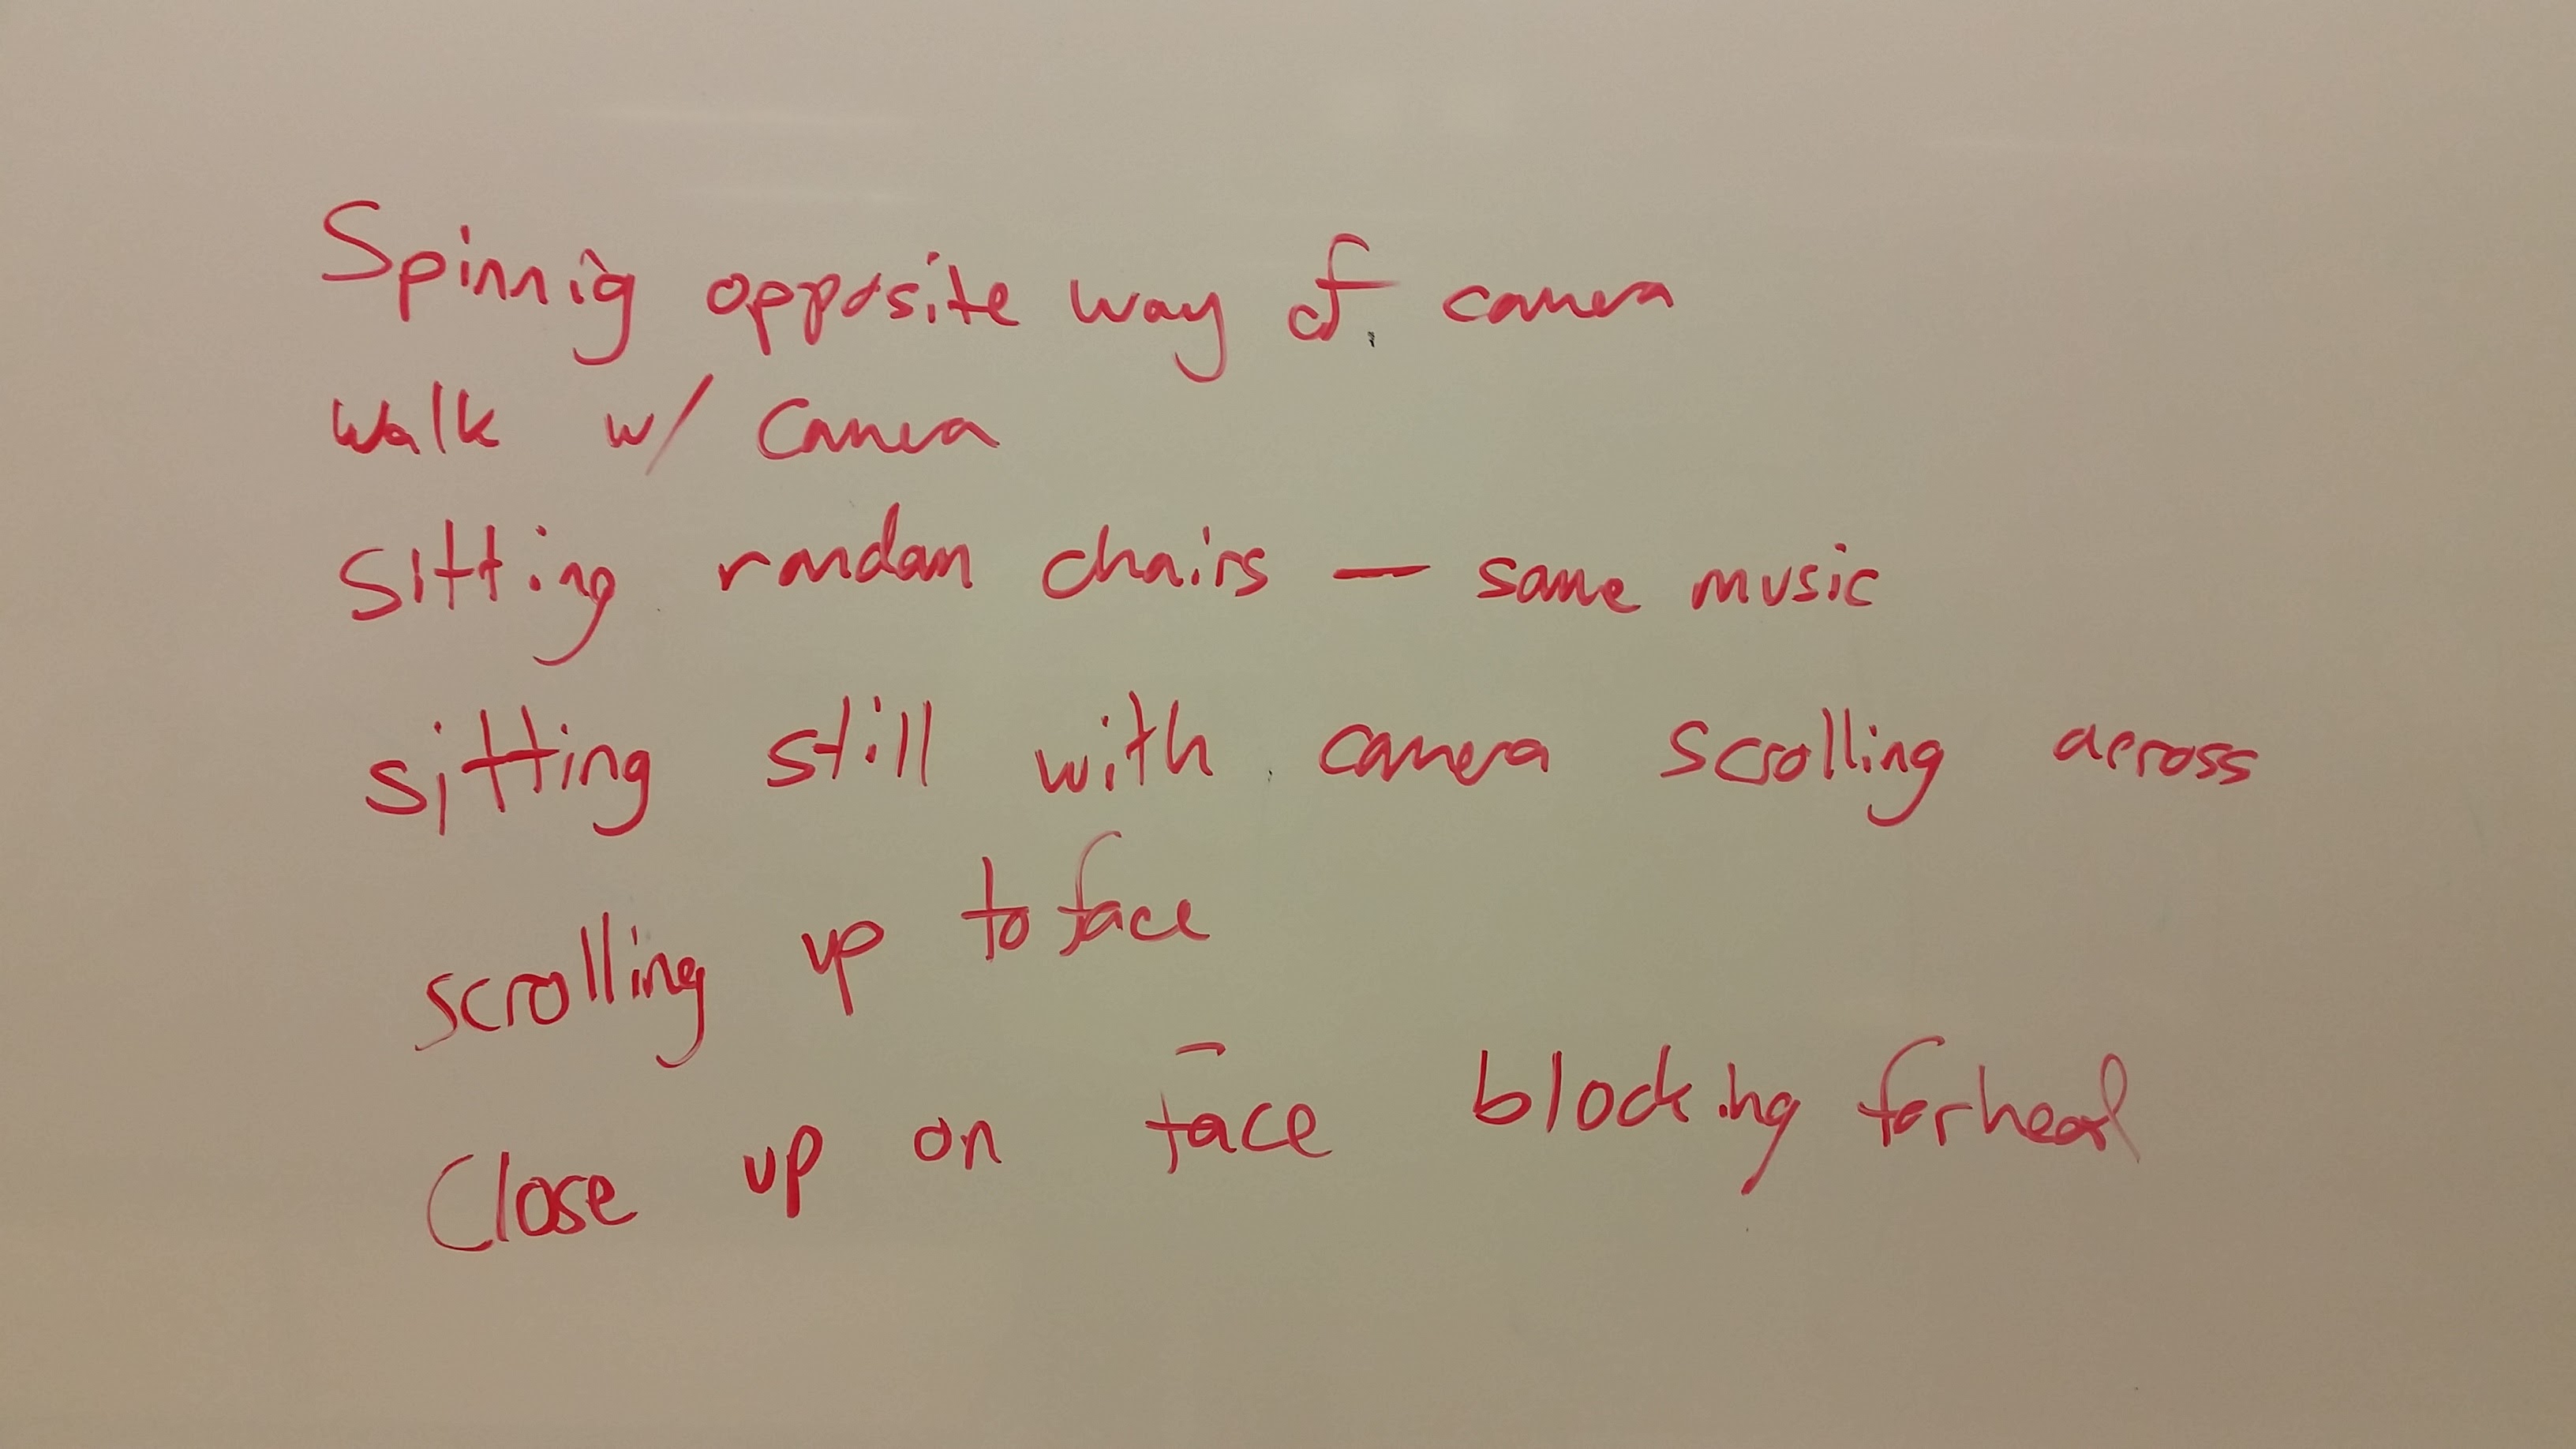 Spinnig opposite way of camera
walk w/ camera
sitting random chairs — same music
sitting still with camera scrolling across
scrolling up to face
Close up on face blocking forhead